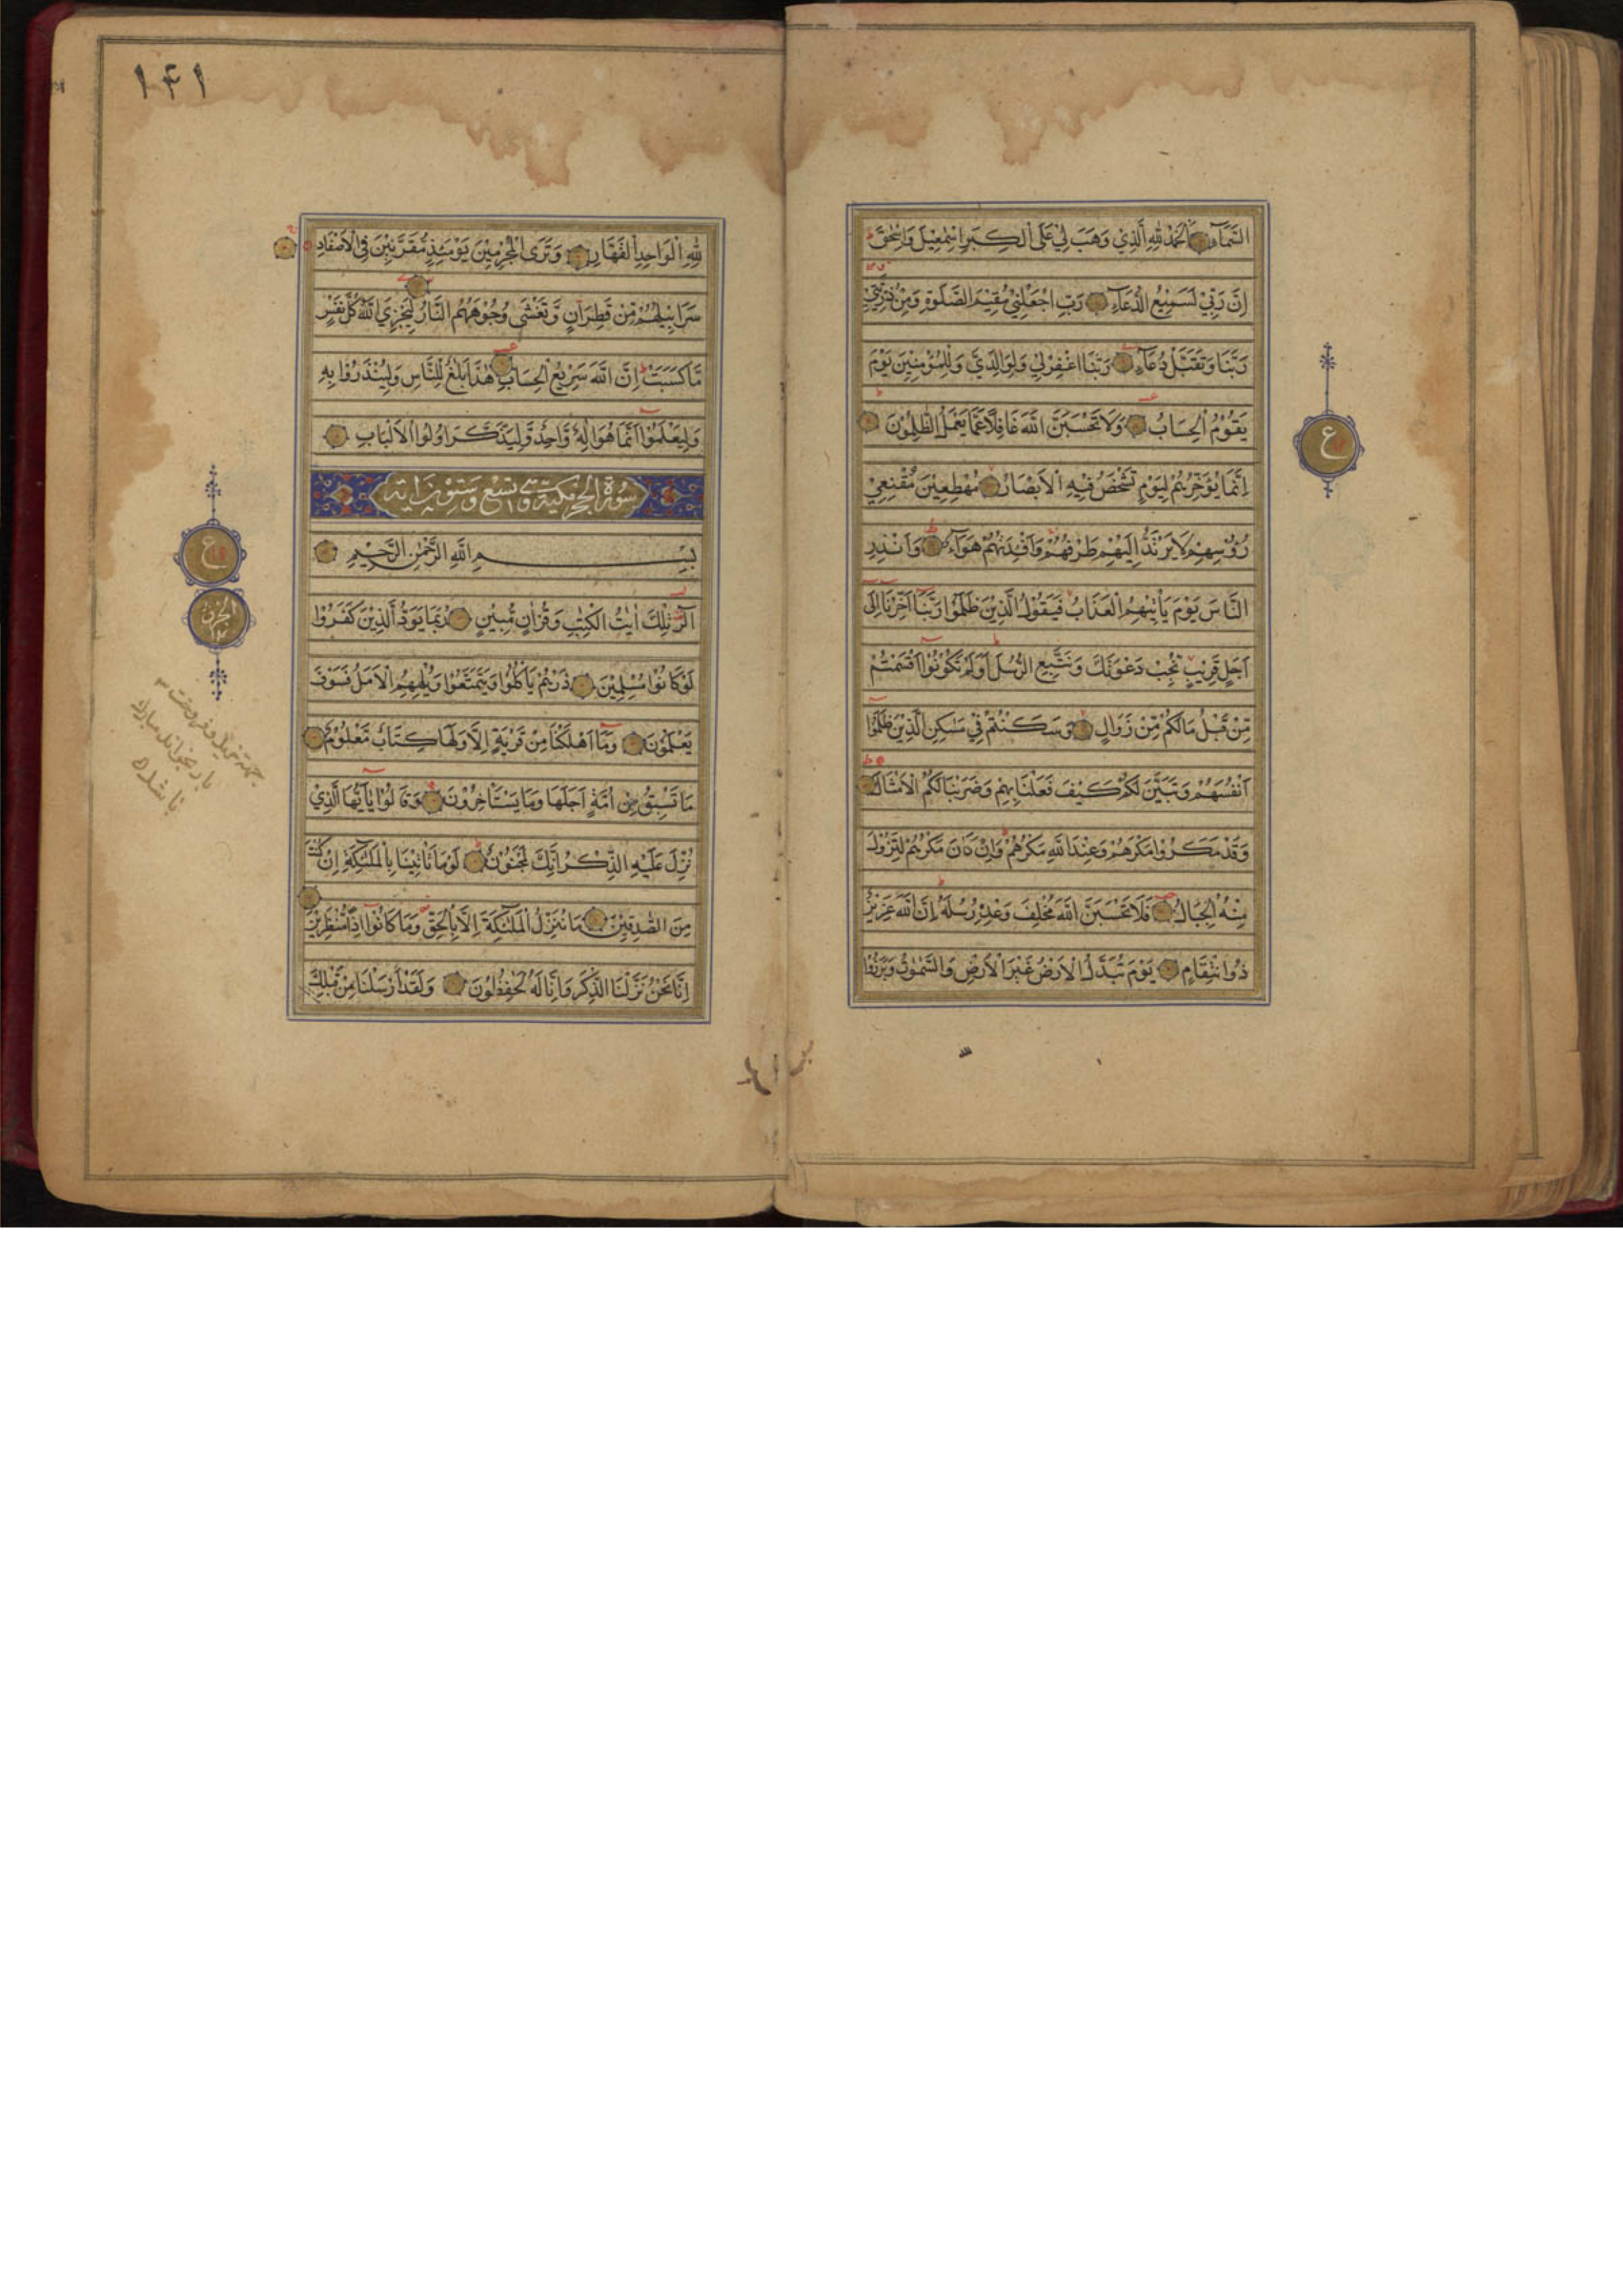 السَّمَآءِ اَلْحَمْدُ لِلّٰهِ الَّذِيْ وَهَبَ لِيْ عَلَى الْكِبَرِ اِسْمٰعِيْلَ وَاِسْحٰقَ
اِنَّ رَبِّيْ لَسَمِيْعُ الدُّعَآءِ رَبِّ اجْعَلْنِيْ مُقِيْمَ الصَّلٰوةِ وَمِنْ ذُرِّيَّتِيْ
رَبَّنَا وَتَقَبَّلْ دُعَآءِ رَبَّنَا اغْفِرْ لِيْ وَلِوَالِدَيَّ وَلِلْمُؤْمِنِيْنَ يَوْمَ
يَقُوْمُ الْحِسَابُ وَلَا تَحْسَبَنَّ اللّٰهَ غَافِلًا عَمَّا يَعْمَلُ الظّٰلِمُوْنَ
اِنَّمَا يُؤَخِّرُهُمْ لِيَوْمٍ تَشْخَصُ فِيْهِ الْاَبْصَارُ مُهْطِعِيْنَ مُقْنِعِيْ
رُؤُسِهِمْ لَا يَرْتَدُّ اِلَيْهِمْ طَرْفُهُمْ وَاَفْـِٕدَتُهُمْ هَوَآءٌ وَاَنْذِرِ
النَّاسَ يَوْمَ يَأْتِيْهِمُ الْعَذَابُ فَيَقُوْلُ الَّذِيْنَ ظَلَمُوْا رَبَّنَا اَخِّرْنَا اِلٰى
اَجَلٍ قَرِيْبٍ نُجِبْ دَعْوَتَكَ وَنَتَّبِعِ الرُّسُلَ اَوَلَمْ تَكُوْنُوْا اَقْسَمْتُمْ
مِّنْ قَبْلُ مَا لَكُمْ مِّنْ زَوَالٍ وَسَكَنْتُمْ فِيْ مَسٰكِنِ الَّذِيْنَ ظَلَمُوْا
اَنْفُسَهُمْ وَتَبَيَّنَ لَكُمْ كَيْفَ فَعَلْنَا بِهِمْ وَضَرَبْنَا لَكُمُ الْاَمْثَالَ
وَقَدْ مَكَرُوْا مَكْرَهُمْ وَعِنْدَ اللّٰهِ مَكْرُهُمْ وَاِنْ كَانَ مَكْرُهُمْ لِتَزُوْلَ
مِنْهُ الْجِبَالُ فَلَا تَحْسَبَنَّ اللّٰهَ مُخْلِفَ وَعْدِهٖ رُسُلَهٗ اِنَّ اللّٰهَ عَزِيْزٌ
ذُو انْتِقَامٍ يَوْمَ تُبَدَّلُ الْاَرْضُ غَيْرَ الْاَرْضِ وَالسَّمٰوٰتُ وَبَرَزُوْا
ع
١٤١
لِلّٰهِ الْوَاحِدِ الْقَهَّارِ وَتَرَى الْمُجْرِمِيْنَ يَوْمَئِذٍ مُّقَرَّنِيْنَ فِي الْاَصْفَادِ
سَرَابِيْلُهُمْ مِّنْ قَطِرَانٍ وَّتَغْشٰى وُجُوْهَهُمُ النَّارُ لِيَجْزِيَ اللّٰهُ كُلَّ نَفْسٍ
مَّا كَسَبَتْ اِنَّ اللّٰهَ سَرِيْعُ الْحِسَابِ هٰذَا بَلٰغٌ لِّلنَّاسِ وَلِيُنْذَرُوْا بِهٖ
وَلِيَعْلَمُوْا اَنَّمَا هُوَ اِلٰهٌ وَّاحِدٌ وَّلِيَذَّكَّرَ اُولُوا الْاَلْبَابِ
سورة الحجر مكية وهي تسع وتسعون اية
بِسْمِ اللّٰهِ الرَّحْمٰنِ الرَّحِيْمِ
الٓرٰ تِلْكَ اٰيٰتُ الْكِتٰبِ وَقُرْاٰنٍ مُّبِيْنٍ رُبَمَا يَوَدُّ الَّذِيْنَ كَفَرُوْا
لَوْ كَانُوْا مُسْلِمِيْنَ ذَرْهُمْ يَأْكُلُوْا وَيَتَمَتَّعُوْا وَيُلْهِهِمُ الْاَمَلُ فَسَوْفَ
يَعْلَمُوْنَ وَمَآ اَهْلَكْنَا مِنْ قَرْيَةٍ اِلَّا وَلَهَا كِتَابٌ مَّعْلُوْمٌ
مَا تَسْبِقُ مِنْ اُمَّةٍ اَجَلَهَا وَمَا يَسْتَأْخِرُوْنَ وَقَالُوْا يٰٓاَيُّهَا الَّذِيْ
نُزِّلَ عَلَيْهِ الذِّكْرُ اِنَّكَ لَمَجْنُوْنٌ لَوْ مَا تَأْتِيْنَا بِالْمَلٰٓئِكَةِ اِنْ كُنْتَ
مِنَ الصّٰدِقِيْنَ مَا نُنَزِّلُ الْمَلٰٓئِكَةَ اِلَّا بِالْحَقِّ وَمَا كَانُوْا اِذًا مُّنْظَرِيْنَ
اِنَّا نَحْنُ نَزَّلْنَا الذِّكْرَ وَاِنَّا لَهٗ لَحٰفِظُوْنَ وَلَقَدْ اَرْسَلْنَا مِنْ قَبْلِكَ
ع
الجزء
١٤